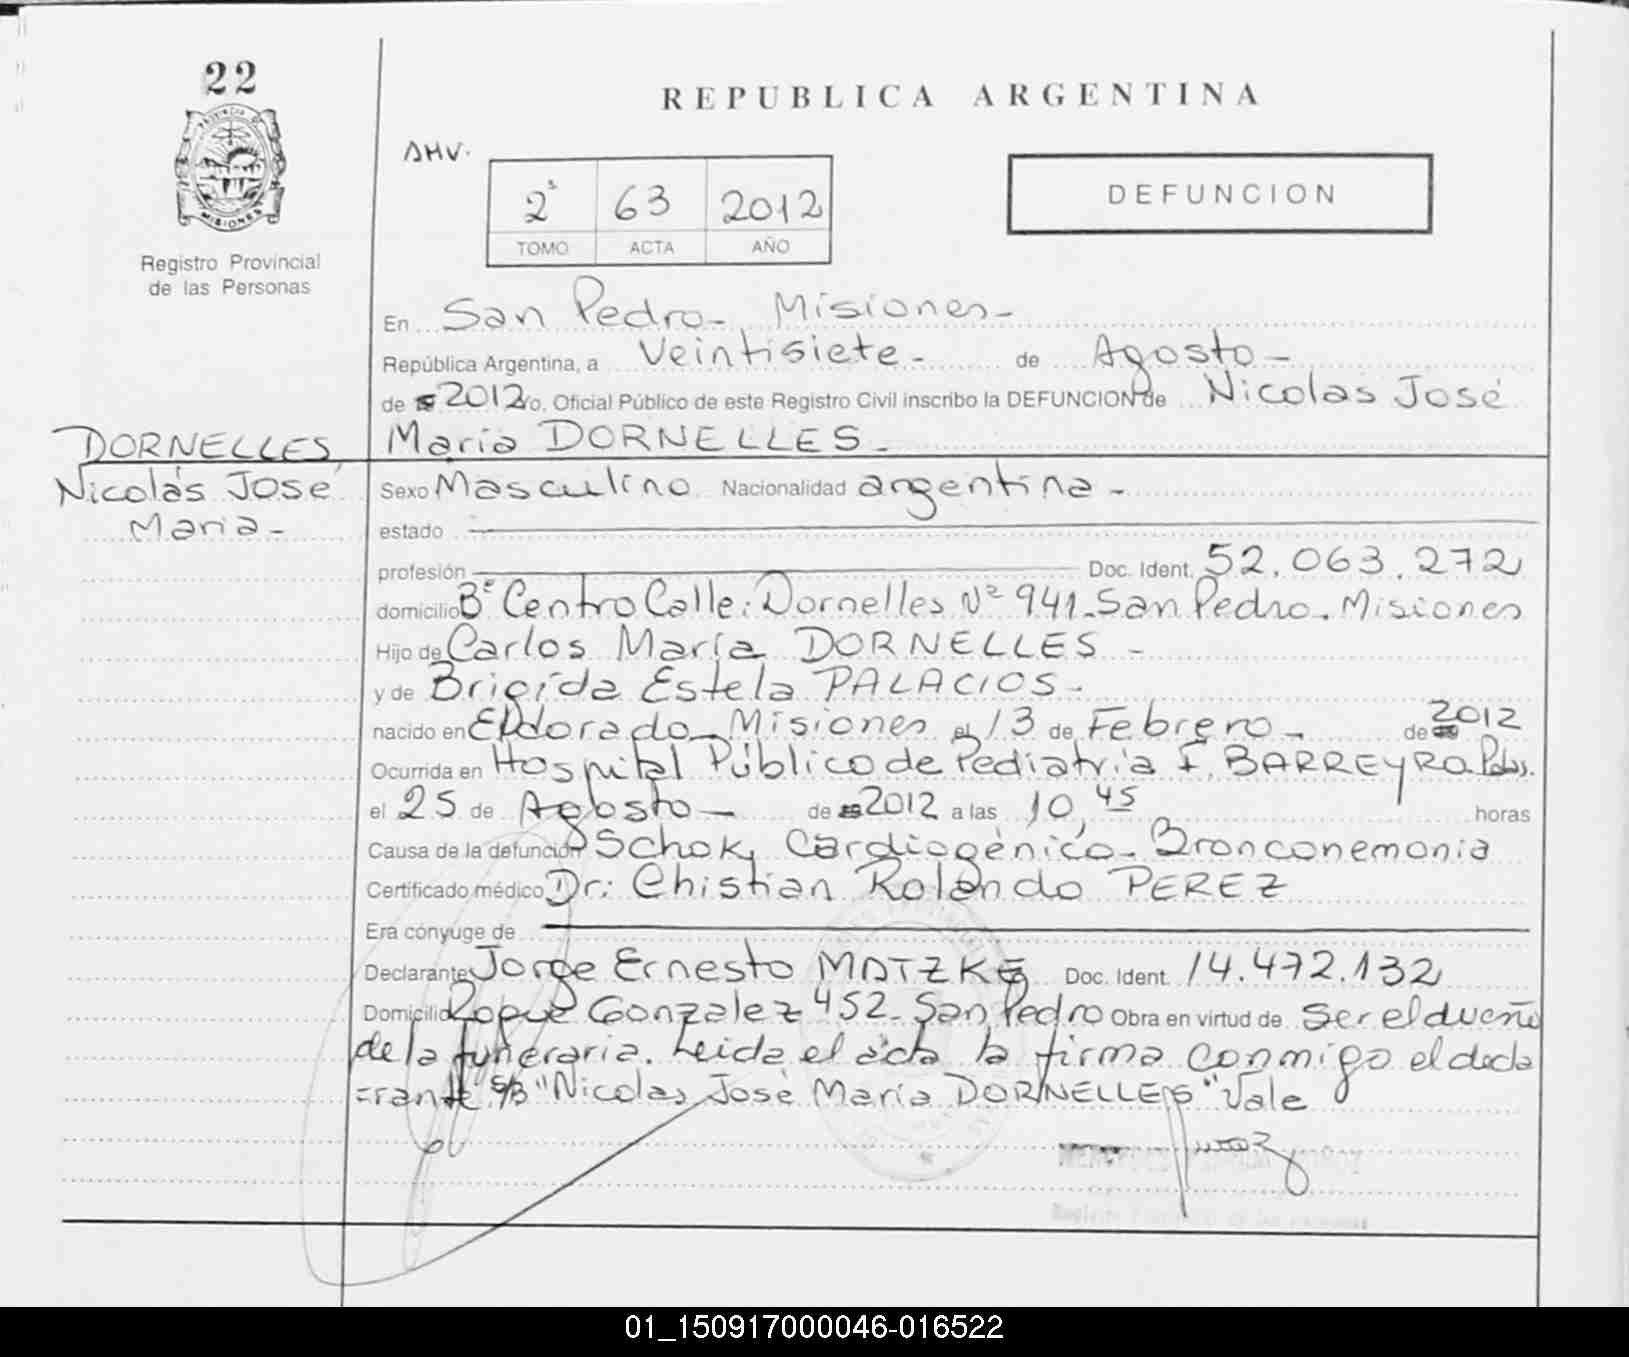 22
REPUBLICA ARGENTINA
AHV.
2° 63 2012
TOMO ACTA AÑO
DEFUNCION
PROVINCIA DE
MISIONES
Registro Provincial
de las Personas
En San Pedro - Misiones -
República Argentina, a Veintisiete - de Agosto -
de 2012 yo, Oficial Público de este Registro Civil inscribo la DEFUNCION de Nicolás José
María DORNELLES -
DORNELLES,
Nicolás José
María -
Sexo Masculino Nacionalidad argentina -
estado
profesión Doc. Ident. 52.063.272
domicilio B° Centro Calle: Dornelles Nº 941 - San Pedro - Misiones
Hijo de Carlos María DORNELLES -
y de Brigída Estela PALACIOS -
nacido en ELdorado - Misiones el 13 de Febrero - de 2012
Ocurrida en Hospital Público de Pediatría F. BARREYRO. Pdas.
el 25 de Agosto - de 2012 a las 10,45 horas
Causa de la defunción Schok Cardiogénico - Bronconemonia
Certificado médico Dr: Chistian Rolando PEREZ
Era cónyuge de
Declarante Jorge Ernesto MATZKE Doc. Ident. 14.472.132
Domicilio Roque Gonzalez 452 - San Pedro Obra en virtud de Ser el dueño
de la funeraria. Leida el acta la firma conmigo el decla
=rante S/B "Nicolas José María DORNELLES" Vale
01_150917000046-016522